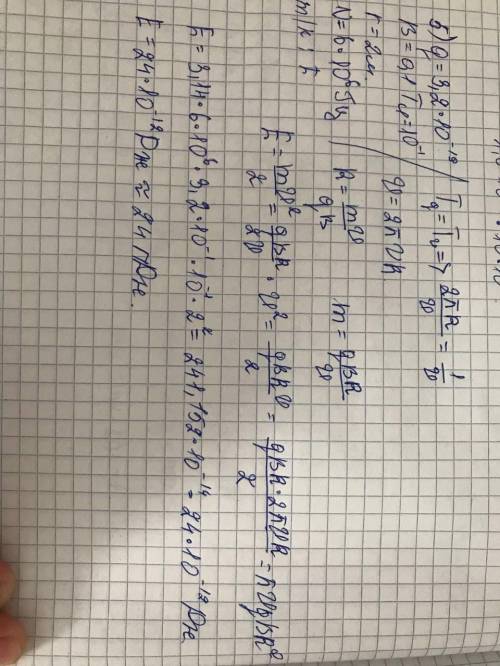 б) q = 3,2·10⁻¹⁹
B = 0,1 Тл = 10⁻¹
r = 2м
N = 6·10⁶ Гц
m/к; E
Tq = Tν => 2πR/v = 1/ν
v = 2πνR
R = mv/qB m = qBR/v
E = mv²/2 = qBR/2v · v² = qBRv/2 = qBR·2πνR/2 = πνqBR²
E = 3,14·6·10⁶·3,2·10⁻¹·10⁻¹·2² = 241,152·10⁻¹⁴ = 24·10⁻¹² Дж
E = 24·10⁻¹² Дж ≈ 24 пДж.